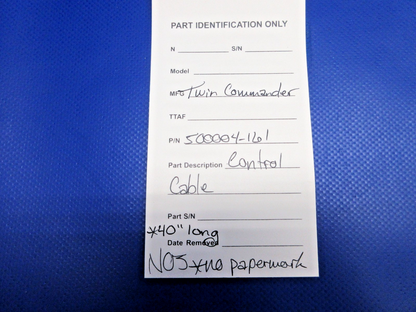 PART IDENTIFICATION ONLY
N ____________ S/N ____________
Model ____________
MFG Twin Commander
TTAF ____________
P/N 500004-161
Part Description Control
Cable
Part S/N ____________
*40" long
Date Removed ____________
NOS *no paperwork